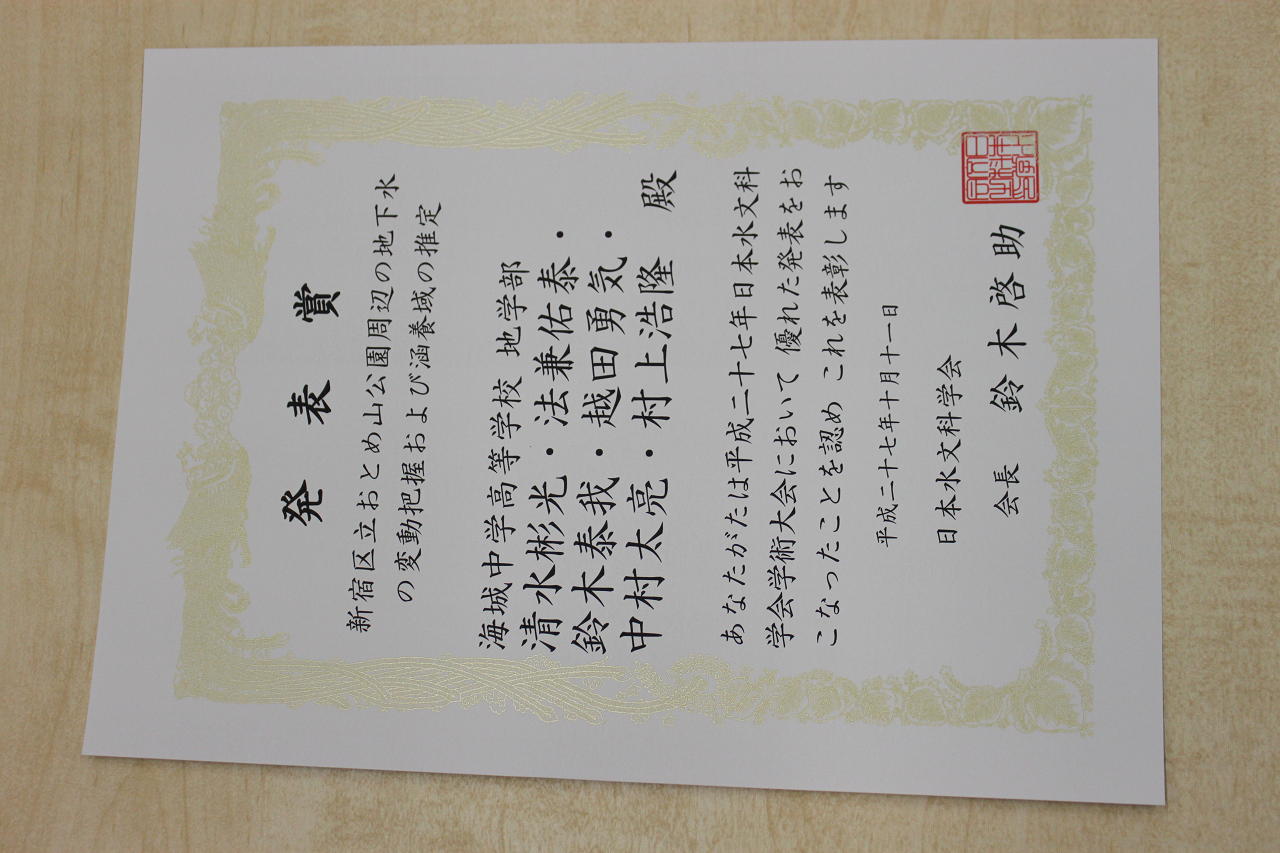 発表賞
新宿区立おとめ山公園周辺の地下水
の変動把握および涵養域の推定
海城中学高等学校 地学部
清水彬光・法兼佑泰・
鈴木泰我・越田勇気・
中村太亮・村上浩隆 殿
あなたがたは平成二十七年日本水文科
学会学術大会において 優れた発表をお
こなったことを認め これを表彰します
平成二十七年十月十一日
日本水文科学会
会長 鈴木啓助